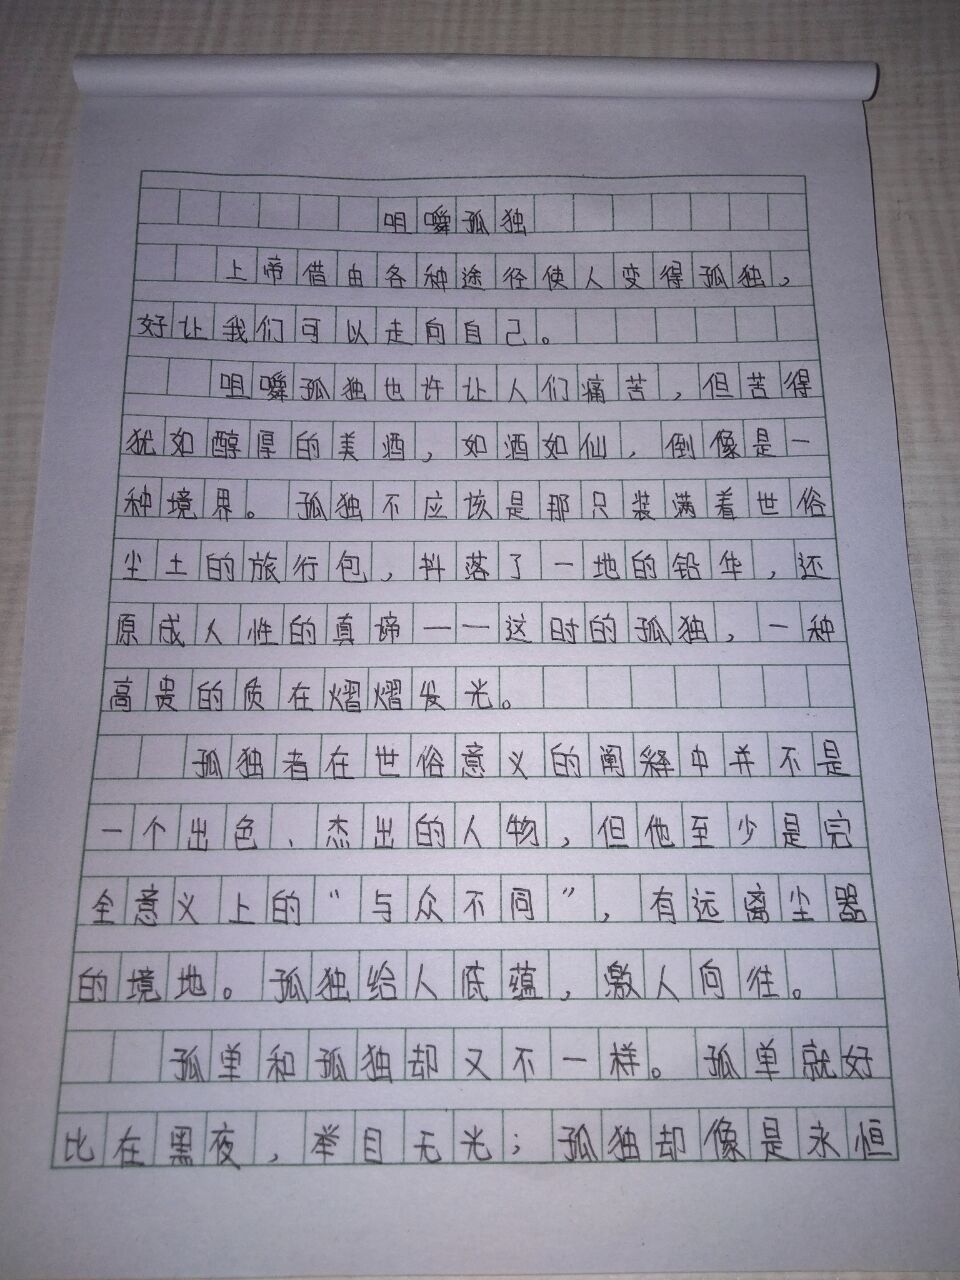 咀嚼孤独
上帝借由各种途径使人变得孤独,
好让我们可以走向自己。
咀嚼孤独也许让人们痛苦,但苦得
犹如醇厚的美酒,如酒如仙,倒像是一
种境界。孤独不应该是那只装满着世俗
尘土的旅行包,抖落了一地的铅华,还
原成人性的真谛——这时的孤独,一种
高贵的质在熠熠发光。
孤独者在世俗意义的阐释中并不是
一个出色、杰出的人物,但他至少是完
全意义上的“与众不同”,有远离尘嚣
的境地。孤独给人底蕴,激人向往。
孤单和孤独却又不一样。孤单就好
比在黑夜,举目无光;孤独却像是永恒